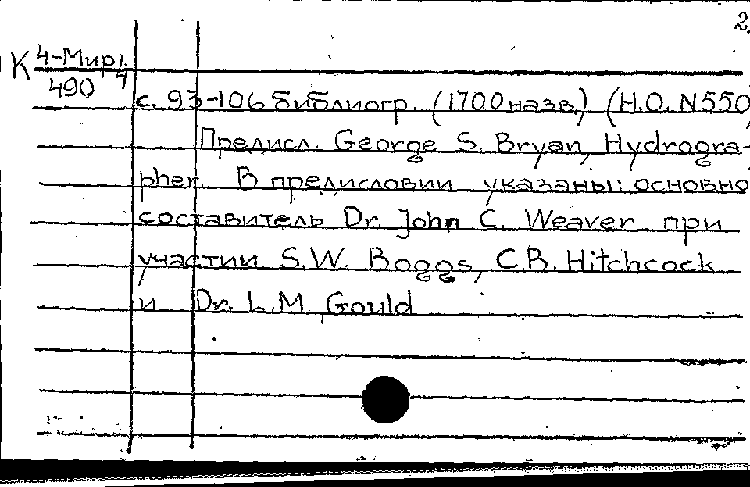 2
К 4-Мир/4
490
с. 93-106 библиогр. (1700 назв.) (H.O. N550
Предисл. George S. Bryan, Hydrogra-
pher. В предисловии указаны: основно
составитель Dr. John C. Weaver при
участии S.W. Boggs, C.B. Hitchcock
и Dr. L.M. Gould